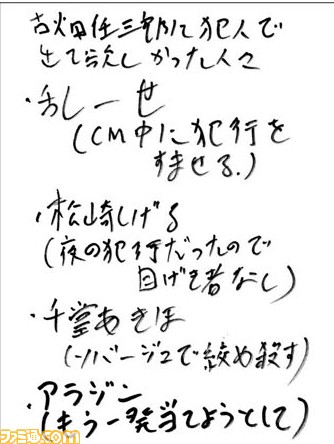 古畑任三郎に犯人で
出て欲しかった人々
・乱一世
(CM中に犯行を
すませる.)
・松崎しげる
(夜の犯行だったので
目げき者なし)
・千堂あきほ
(ソバージュで絞め殺す)
・アラジン
(もう一発当てようとして)
ファミ通.com